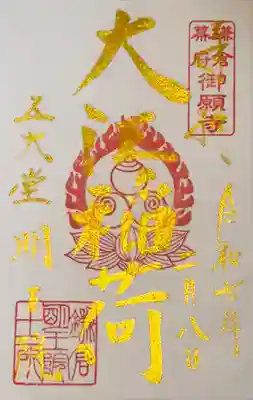 鎌倉
幕府御願寺
令和七年
月八日
大
荷
五大堂 明王院
鎌倉
明王院
十二所